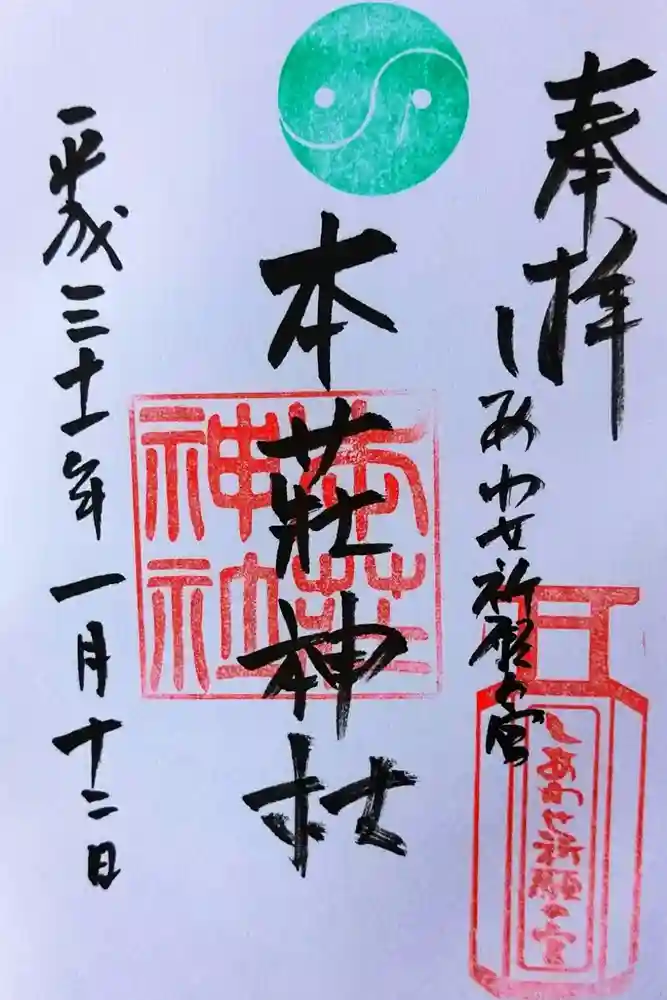 奉拝
しあわせ祈願の宮
本荘神社
本莊神社
平成三十一年一月十二日
しあわせ祈願の宮